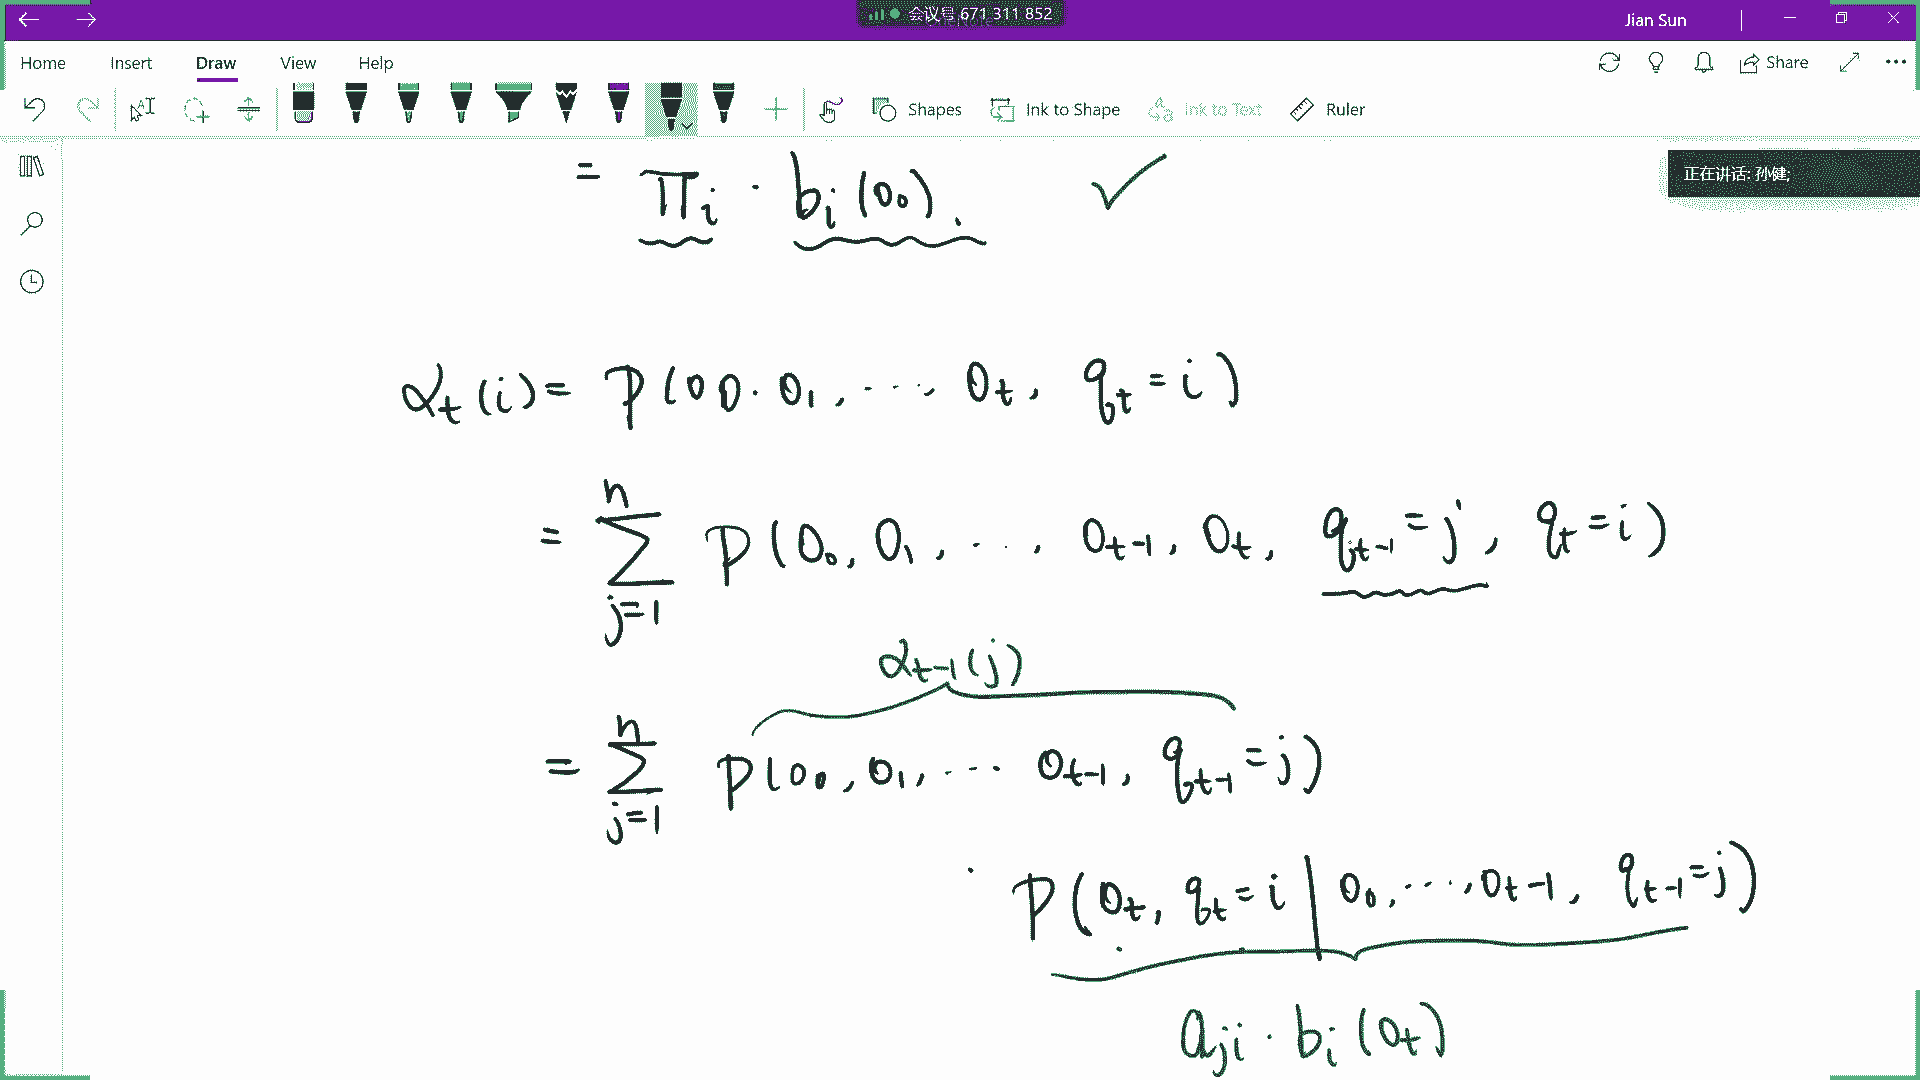 会议号 671 311 852
Jian Sun
Home Insert Draw View Help Share
Shapes Ink to Shape Ink to Text Ruler
正在讲话: 孙健;
= π_i · b_i(o_0).  ✓
α_t(i) = P(o_0. o_1, ..., o_t, q_t = i)
= ∑_{j=1}^{n} P(o_0, o_1, ..., o_{t-1}, o_t, q_{t-1} = j, q_t = i)
α_{t-1}(j)
= ∑_{j=1}^{n} P(o_0, o_1, ... o_{t-1}, q_{t-1} = j)
· P(o_t, q_t = i | o_0, ..., o_{t-1}, q_{t-1} = j)
a_{ji} · b_i(o_t)